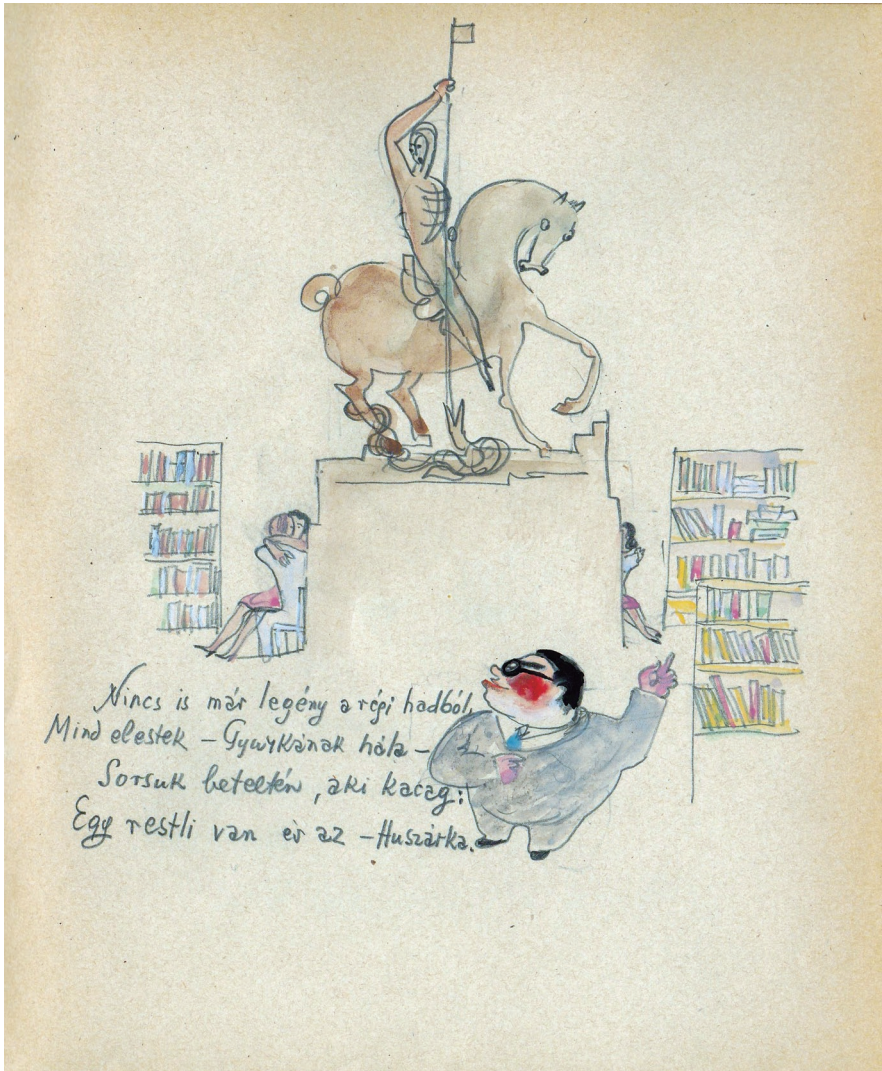 Nincs is már legény a régi hadból,
Mind elestek – Gyurkának hála –
Sorsuk beteltén, aki kacag:
Egy restli van és az – Huszárka.